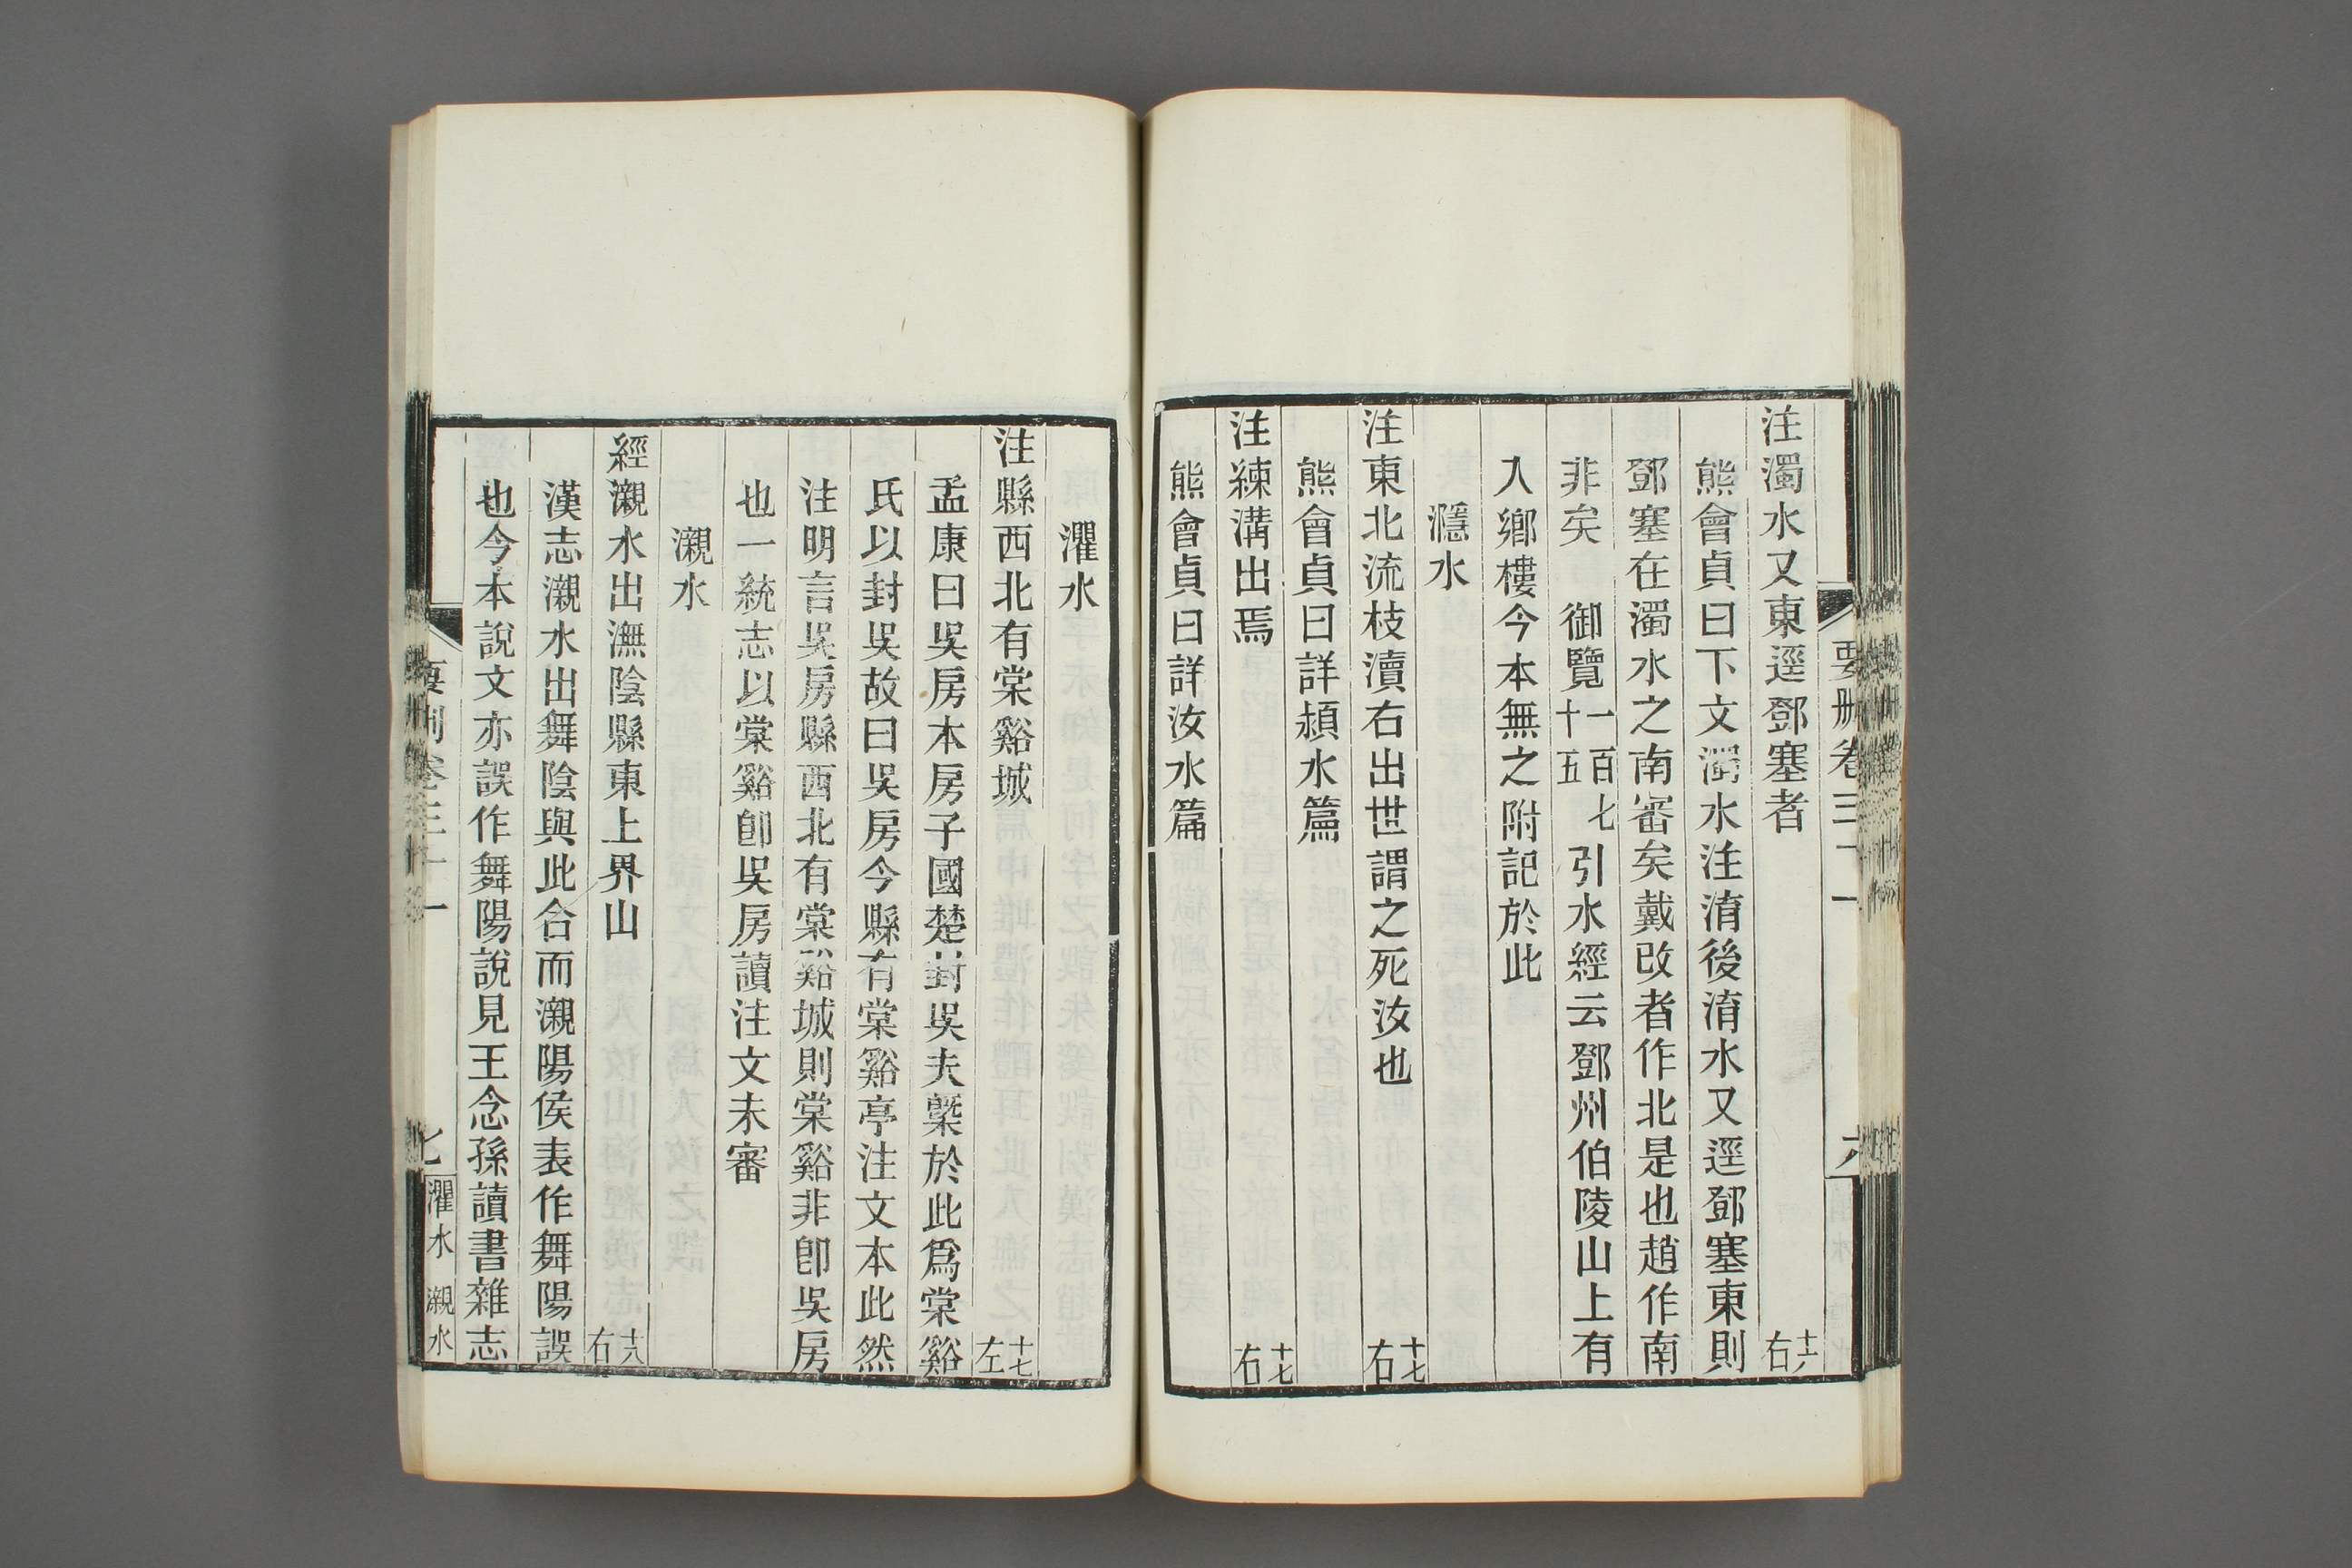 注濁水又東逕鄧塞者 十六右
熊會貞曰下文濁水注淯後淯水又逕鄧塞東則
鄧塞在濁水之南審矣戴改者作北是也趙作南
非矣 御覽一百七十五引水經云鄧州伯陵山上有
入鄉樓今本無之附記於此
㶏水
注東北流枝瀆右出世謂之死汝也 十七右
熊會貞曰詳潁水篇
注練溝出焉 十七右
熊會貞曰詳汝水篇
灈水
注縣西北有棠谿城 十七左
孟康曰吳房本房子國楚封吳夫㮣於此爲棠谿
氏以封吳故曰吳房今縣有棠谿亭注文本此然
注明言吳房縣西北有棠谿城則棠谿非卽吳房
也一統志以棠谿卽吳房讀注文未審
瀙水
經瀙水出潕陰縣東上界山 十八右
漢志瀙水出舞陰與此合而瀙陽侯表作舞陽誤
也今本說文亦誤作舞陽說見王念孫讀書雜志
要刪卷三十一 七 灈水 瀙水